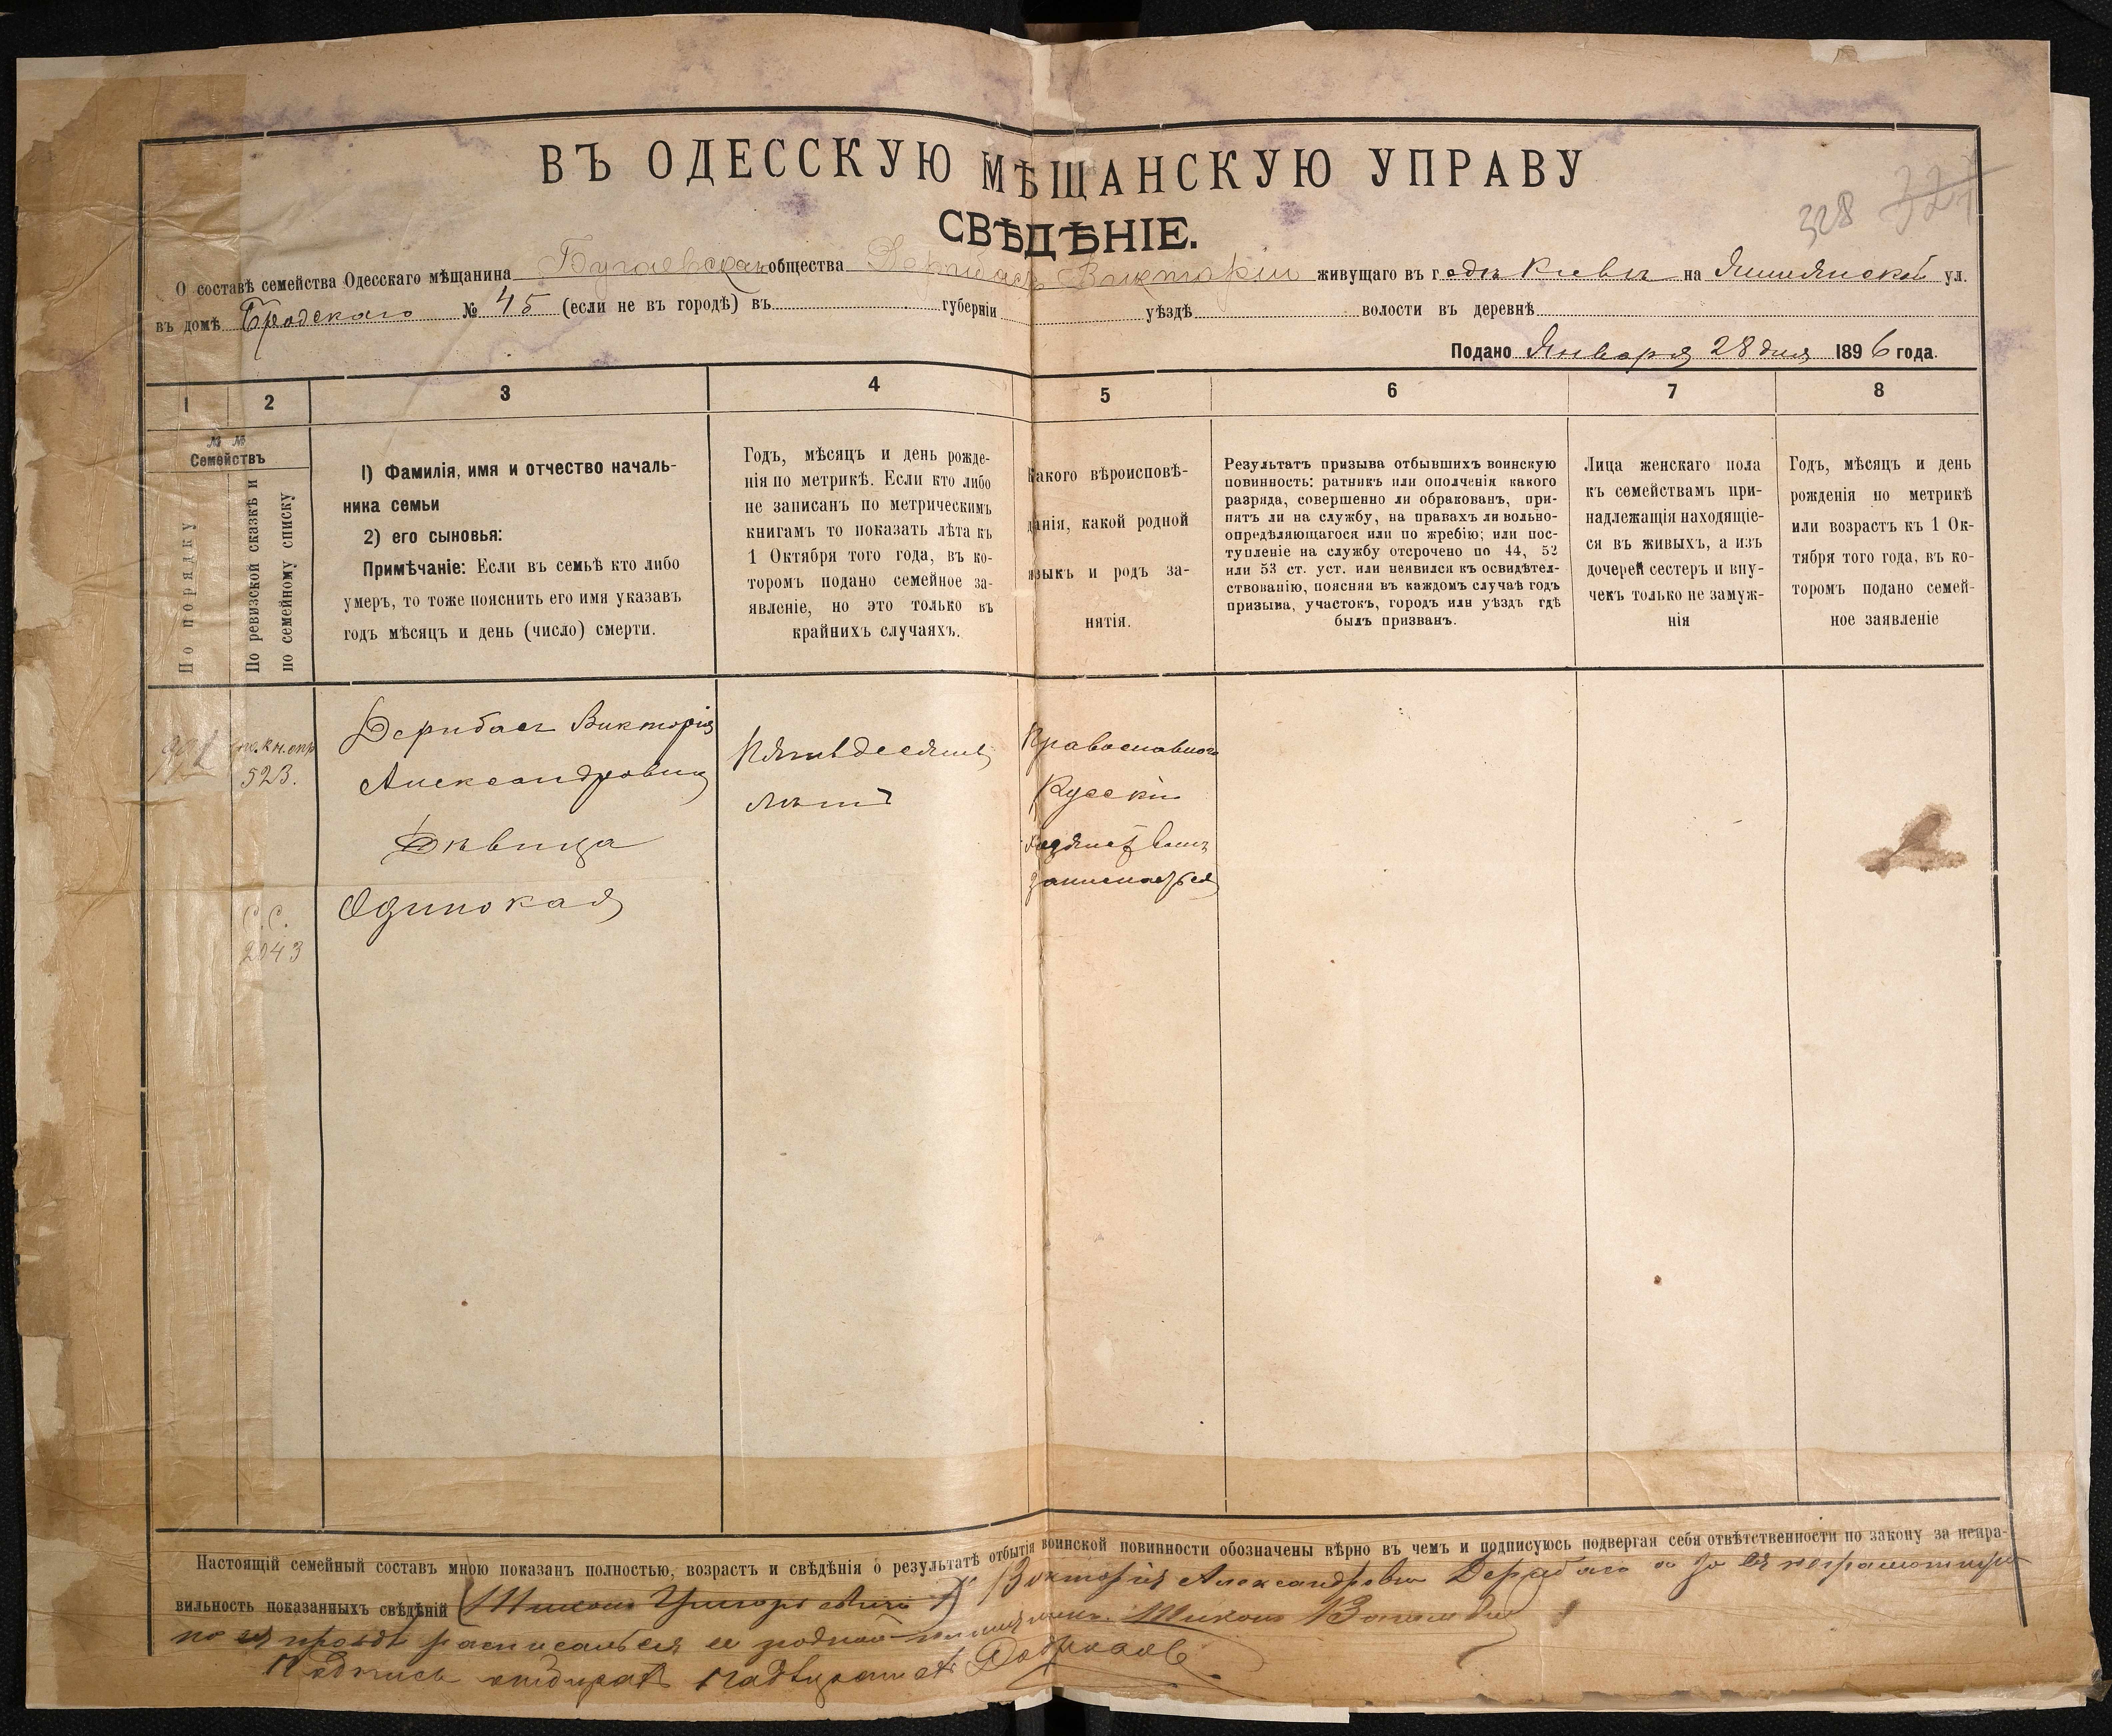 328 327
ВЪ ОДЕССКУЮ МѢЩАНСКУЮ УПРАВУ
СВѢДѢНІЕ.
О составѣ семейства Одесскаго мѣщанина Бугаевскаго общества Дерибасъ Викторіи живущаго въ г. одѣ Кіевѣ на ул.
въ домѣ Бродскаго № 45 (если не въ городѣ) въ губерніи уѣздѣ волости въ деревнѣ
Подано Января 28 дня 1896 года.
1 2 3 4 5 6 7 8
№ №
Семействъ
По порядку
По ревизской сказкѣ и
по семейному списку
1) Фамилія, имя и отчество началь-
ника семьи
2) его сыновья:
Примѣчаніе: Если въ семьѣ кто либо
умеръ, то тоже пояснить его имя указавъ
годъ мѣсяцъ и день (число) смерти.
Годъ, мѣсяцъ и день рожде-
нія по метрикѣ. Если кто либо
не записанъ по метрическимъ
книгамъ то показать лѣта къ
1 Октября того года, въ ко-
торомъ подано семейное за-
явленіе, но это только въ
крайнихъ случаяхъ.
Какого вѣроисповѣ-
данія, какой родной
языкъ и родъ за-
нятія.
Результатъ призыва отбывшихъ воинскую
повинность: ратникъ или ополченія какого
разряда, совершенно ли обракованъ, при-
нятъ ли на службу, на правахъ ли вольно-
опредѣляющагося или по жребію; или пос-
тупленіе на службу отсрочено по 44, 52
или 53 ст. уст. или неявился къ освидѣтел-
ствованію, поясняя въ каждомъ случаѣ годъ
призыва, участокъ, городъ или уѣздъ гдѣ
былъ призванъ.
Лица женскаго пола
къ семействамъ при-
надлежащія находящіе-
ся въ живыхъ, а изъ
дочерей сестеръ и вну-
чекъ только не замуж-
нія
Годъ, мѣсяцъ и день
рожденія по метрикѣ
или возрастъ къ 1 Ок-
тября того года, въ ко-
торомъ подано семей-
ное заявленіе
523.
С.С.
2043
Дерибасъ Викторія
Александровна
Дѣвица
Одинокая
Пятьдесять
лѣтъ
Православного
Русскій
Настоящій семейный составъ мною показанъ полностью, возрастъ и свѣдѣнія о результатѣ отбытія воинской повинности обозначены вѣрно въ чемъ и подписуюсь подвергая себя отвѣтственности по закону за непра-
вильность показанныхъ свѣдѣній Викторія Александровна Дерибасъ а за ея неграмотную
по ея прозьбѣ росписался ее родной
Подпись отбиралъ Надзиратель